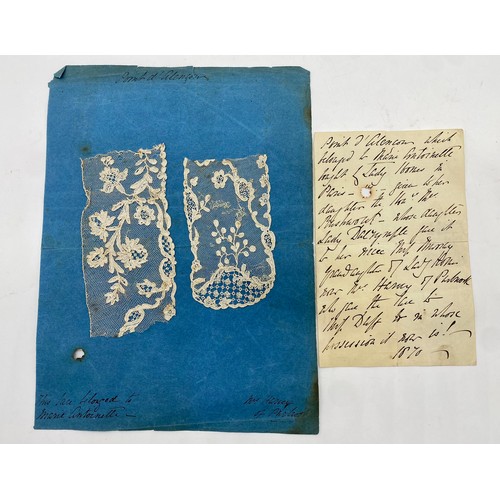 Point d'Alençon
This lace belonged to
Marie Antoinette
Mrs Henry
of
Point d'Alençon which
belonged to Marie Antoinette
bought by Lady in
Paris given to her
daughter the Honble Mrs
whose daughter
Lady Dalrymple gave it
to her niece Mrs Murray
Granddaughter of Lady
now Mrs Henry of
who gave the lace to
Mrs Duff in whose
possession it now is!
1870